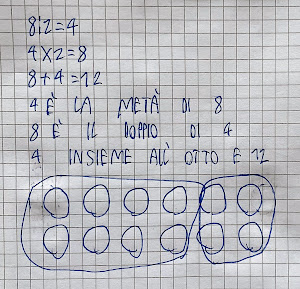 8:2=4
4X2=8
8+4=12
4 È LA METÀ DI 8
8 È IL DOPPIO DI 4
4 INSIEME ALL' OTTO E 12